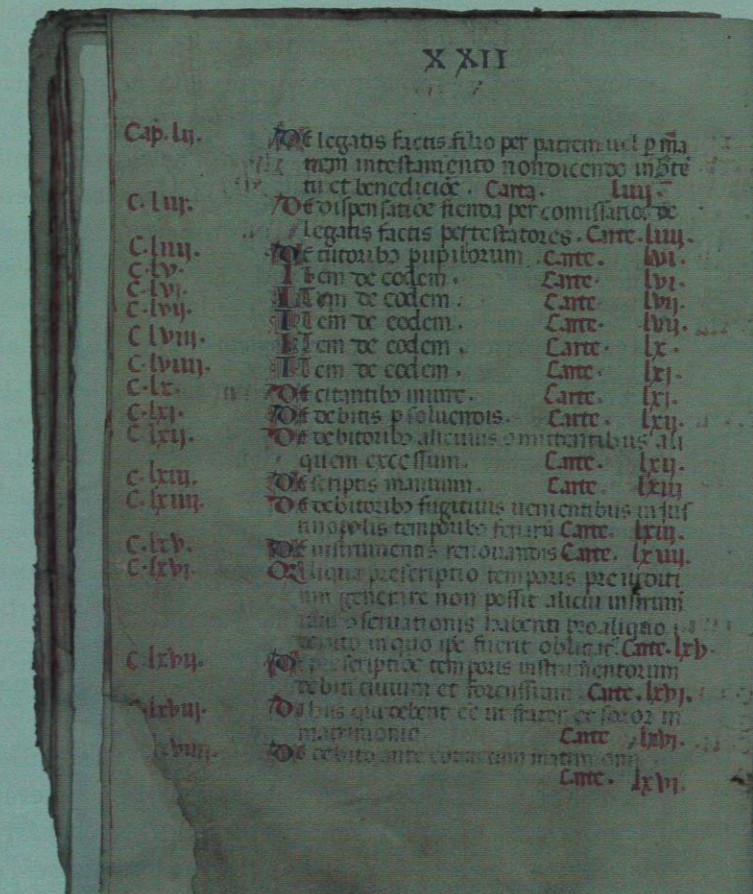 XXII
Cap. lij. De legatis factis filio per patrem uel p mã
trem in testamento non dicendo
tu et benediciõe. Carta. liiij.
C. liij. De dispensatiõe fienda per comissarios de
legatis factis per testatores. Carte. liiij.
C. liiij. De tutoribɔ pupillorum. Carte. lvi.
C. lv. Item de eodem. Carte. lvi.
C. lvi. Item de eodem. Carte. lvij.
C. lvij. Item de eodem. Carte. lvij.
C lviij. Item de eodem. Carte. lx.
C. lviiij. Item de eodem. Carte. lxj.
C. lx. De citantibɔ Carte. lxj.
C. lxj. De debitis ꝑsoluendis. Carte. lxij.
C. lxij. De debitoribɔ alicuius ɔmittentibus ali
quem excessum. Carte. lxij.
C. lxiij. De scriptis manuum. Carte. lxiij
C. lxiiij. De debitoribɔ fugitiuis uenientibus in
temporibɔ Carte. lxiij.
C. lxv. De instrumentis renouandis Carte. lxiiij.
C. lxvj. aliqua prescriptio temporis
generare non possit alicui
ɔseruationis habenti pro aliquo
debito in quo ipẽ fuerit obligat. Carte. lxv.
C. lxvij. De prescriptiõe temporis instrumentorum
debiti ciuium et Carte. lxvj.
lxviij. De his qui debent ẽẽ ut frater et soror in
matrimonio Carte lxvj.
lxviiij. De debito ante
Carte. lxvj.